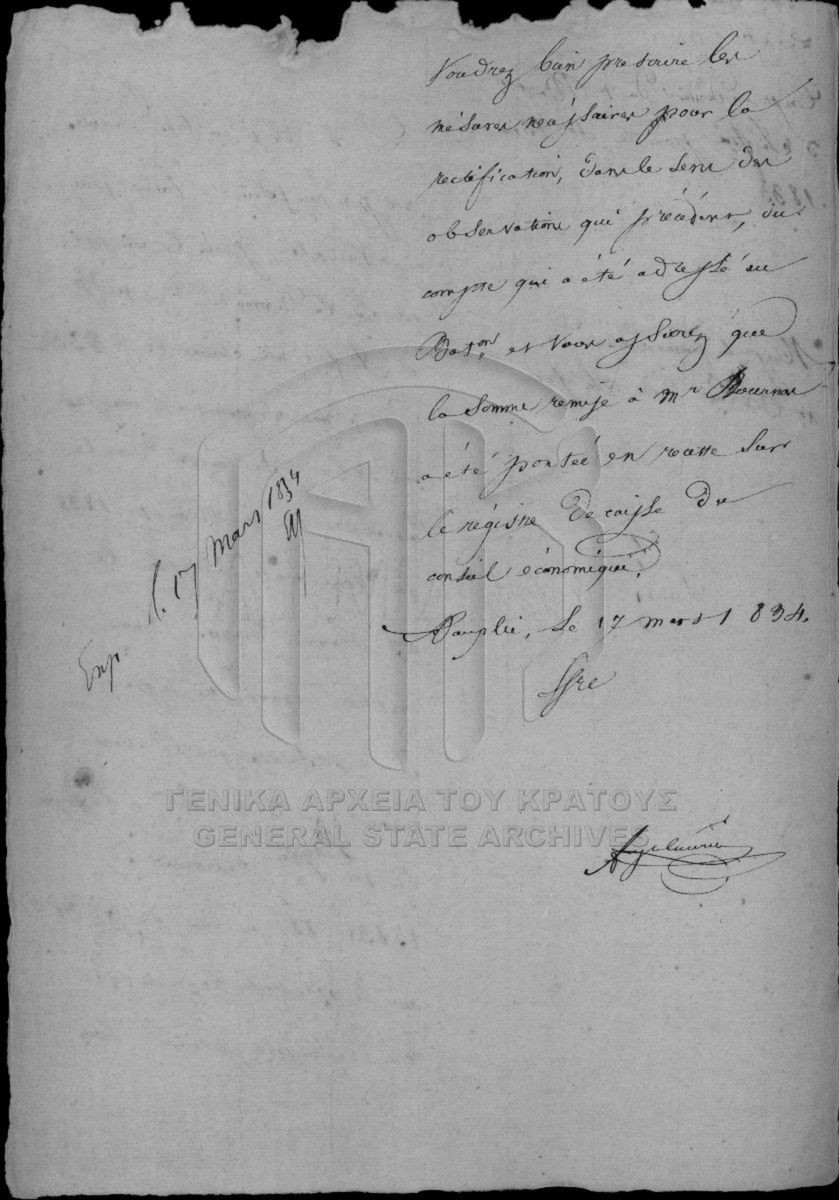 Voudrez bien prescrire les
mésures nécéssaires pour la
rectification, dans le sens des
observations qui précédent, du
compte qui a été adressé au
Bat.on et vous assurez que
la somme remise à mr
a été portée en recette sur
le régistre de caisse du
conseil économique.
Nauplie, le 17 mars 1834.
l. 17 Mars 1834
Exp.
ΓΕΝΙΚΑ ΑΡΧΕΙΑ ΤΟΥ ΚΡΑΤΟΥΣ
GENERAL STATE ARCHIVES